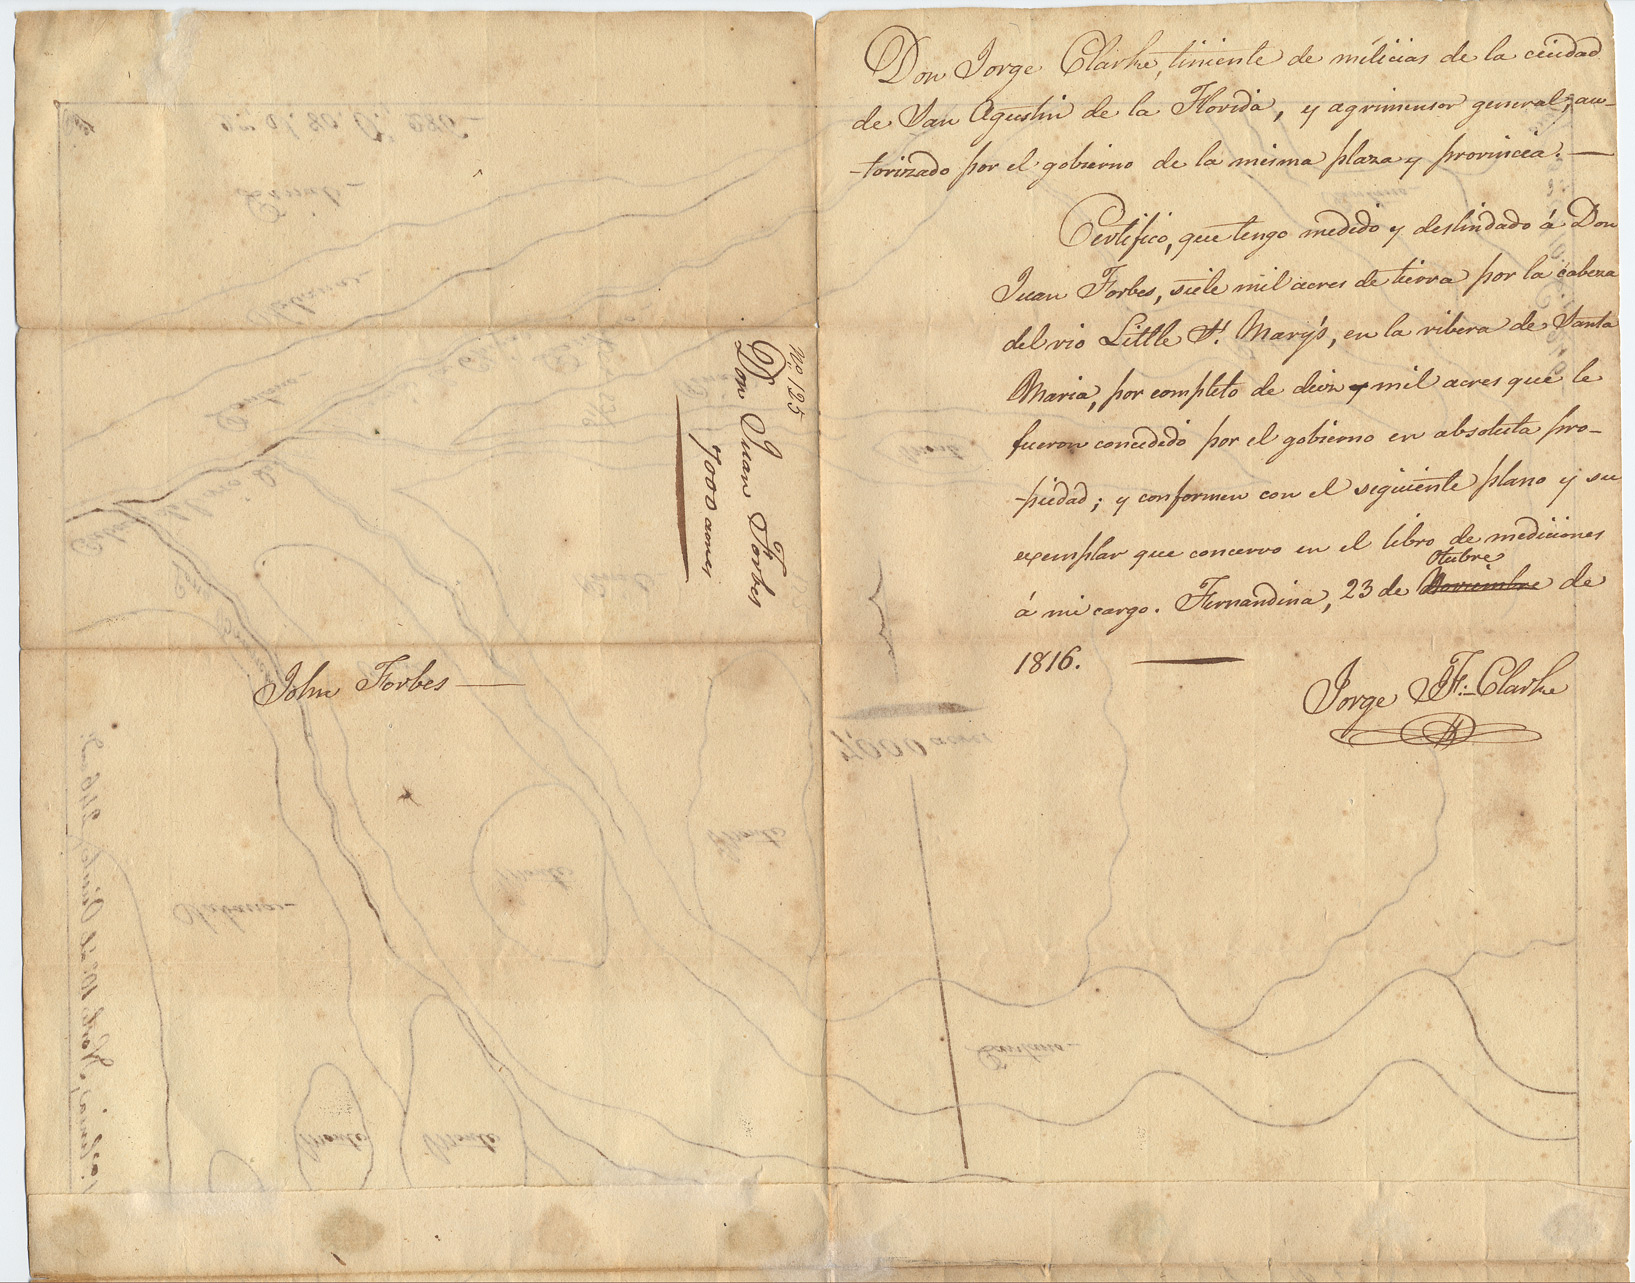 Don Jorge Clarke, tiniente de milicias de la ciudad
de San Agustin de la Florida, y agrimensor general, au-
-torizado por el gobierno de la misma plaza y provincia. —
Certifico, que tengo medido y deslindado á Don
Juan Forbes, siete mil acres de tierra por la cabeza
del rio Little St. Mary's, en la ribera de Santa
Maria, por completo de diez mil acres que le
fueron concedido por el gobierno en absoluta pro-
-piedad; y conformen con el siguiente plano y su
exemplar que concervo en el libro de mediciones
Otubre
á mi cargo. Fernandina, 23 de Noviembre de
1816. —
Jorge J. F. Clarke
No. 125
Don Juan Forbes
7000 acres
John Forbes —
7,000 acres
Savanas
Monte
Monte
Monte
Monte
Pantano
Monte
Pinal